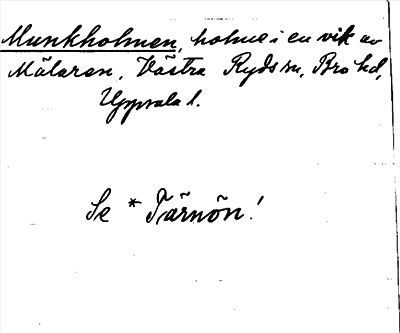 Munkholmen, holme i en vik av
Mälaren, Västra Ryds sn, Bro hd,
Uppsala l.
Se * Tärnön!